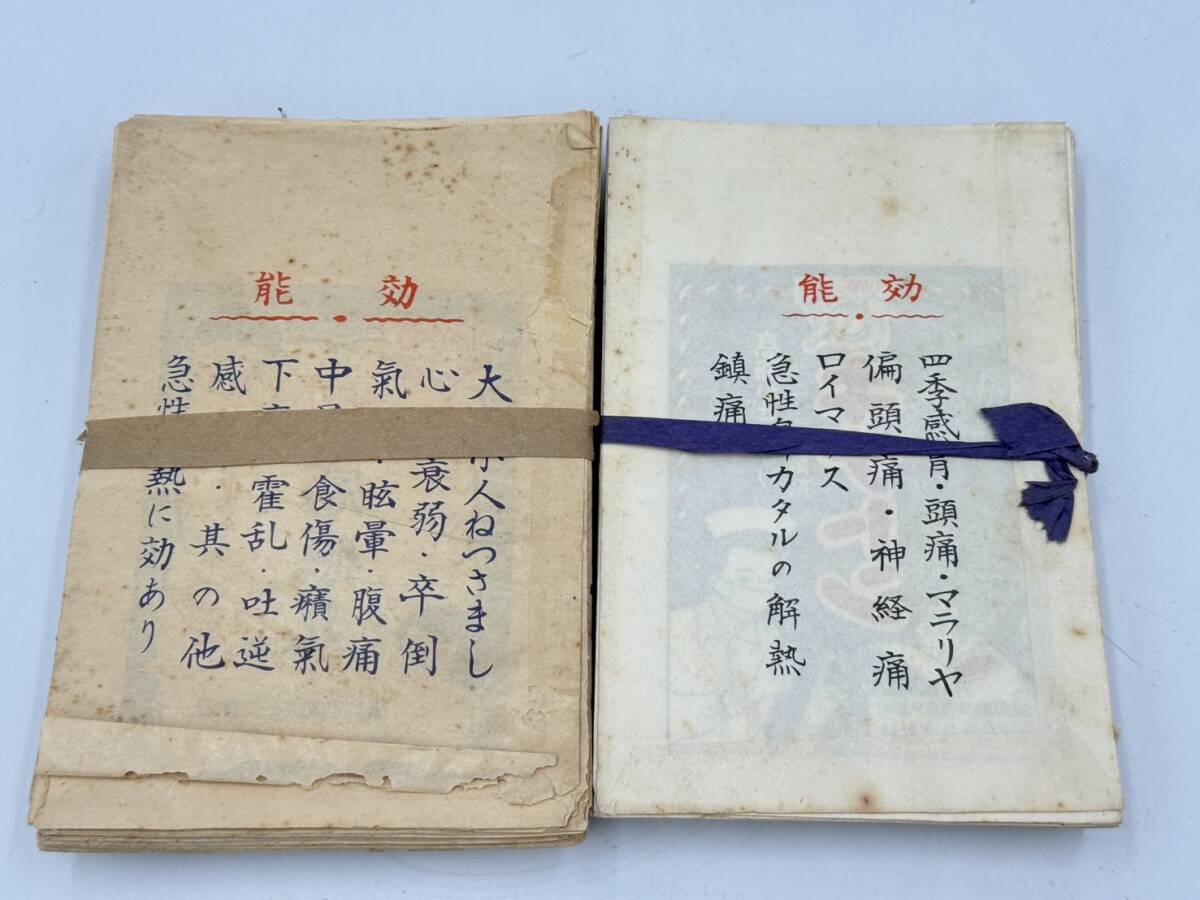 効能
大 小人ねつさまし
心 衰弱・卒倒
氣 ・眩暈・腹痛
中 食傷・癪氣
下 霍乱・吐逆
感 ・其の他
急性 熱に効あり
効能
四季感冒・頭痛・マラリヤ
偏頭痛・神経痛
ロイマチス
急性 カタルの解熱
鎮痛